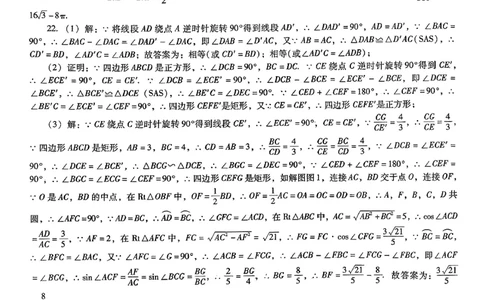 16√3-8π.
22. (1) 解：∵ 将线段 AD 绕点 A 逆时针旋转 90°得到线段 AD′，∴ ∠DAD′=90°，AD=AD′，∵ ∠BAC=
90°，∴ ∠BAC-∠DAC=∠DAD′-∠DAC，即∠DAB=∠D′AC，又∵ AB=AC，∴ △DAB≌△D′AC(SAS)，∴
CD′=BD，∠AD′C=∠ADB；故答案为：相等(或 CD′=BD)；相等(或∠AD′C=∠ADB)；
(2) 证明：∵ 四边形 ABCD 是正方形，∴ ∠DCB=90°，BC=DC. ∵ CE 绕点 C 逆时针旋转 90°得到 CE′，
∴ ∠ECE′=90°，CE=CE′. ∵ ∠DCB=∠ECE′=90°，∴ ∠DCB-∠BCE=∠ECE′-∠BCE，即∠DCE=
∠BCE′，∴ △BCE′≌△DCE (SAS)，∴ ∠BE′C=∠DEC=90°. ∵ ∠CED+∠CEF=180°，∴ ∠CEF=90°，∴
∠BE′C=∠ECE′=∠CEF=90°，∴ 四边形 CEFE′是矩形，又∵ CE=CE′，∴ 四边形 CEFE′是正方形；
(3) 解：∵ CE 绕点 C 逆时针旋转 90°得到线段 CE′，∴ ∠ECE′=90°，CE=CE′，∵ CG/CE′=4/3，∴ CG/CE=4/3，
∵ 四边形 ABCD 是矩形，AB=3，BC=4，∴ CD=AB=3，∴ BC/CD=4/3，∴ CG/CE=BC/CD=4/3，∵ ∠DCB=∠ECE′=
90°，∴ ∠DCE=∠BCE′，∴ △BCG∽△DCE，∴ ∠BGC=∠DEC=90°，∵ ∠CED+∠CEF=180°，∴ ∠CEF=
90°，∴ ∠BGC=∠ECG=∠CEF=90°，∴ 四边形 CEFG 是矩形，如解图图 1，连接 AC，BD 交于点 O，连接 OF，
∵ O 是 AC，BD 的中点，在 Rt△OBF 中，OF=1/2BD，∴ OF=1/2AC=OA=OC=OD=OB，∴ A，F，B，C，D 共
圆，∴ ∠AFC=90°，∵ AD=BC，∴ AD=BC，∴ ∠GFC=∠ACD，在 Rt△ABC 中，AC=√AB²+BC²=5，∴ cos∠ACD
=AD/AC=3/5，∵ AF=2，在 Rt△AFC 中，FC=√AC²-AF²=√21，∴ FG=FC·cos∠CFG=3√21/5，∵ BC=BC，
∴ ∠BFC=∠BAC，又∵ ∠AFC=∠G=90°，∴ ∠ACB=∠FCG，∴ ∠ACB-∠FCB=∠FCG-∠FCB，即∠ACF
=∠BCG，∴ sin∠ACF=AF/AC=sin∠BCG=BG/BC，∴ 2/5=BG/4，∴ BG=8/5，∴ BF=3√21/5-8/5. 故答案为：3√21/5
8